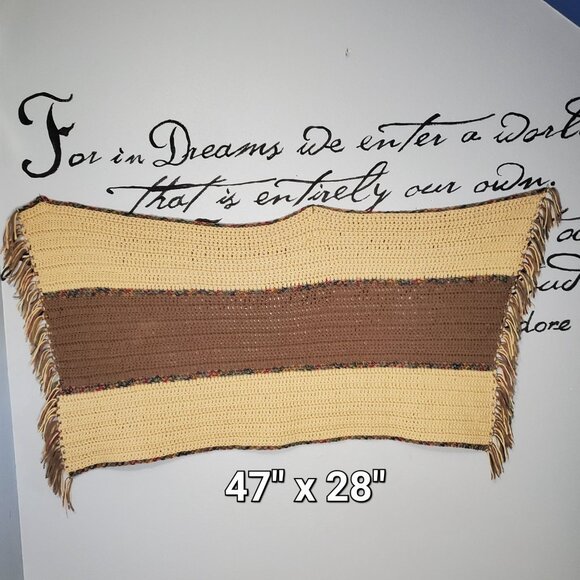 For in Dreams we enter a worl
that is entirely our own.
dore
47" x 28"